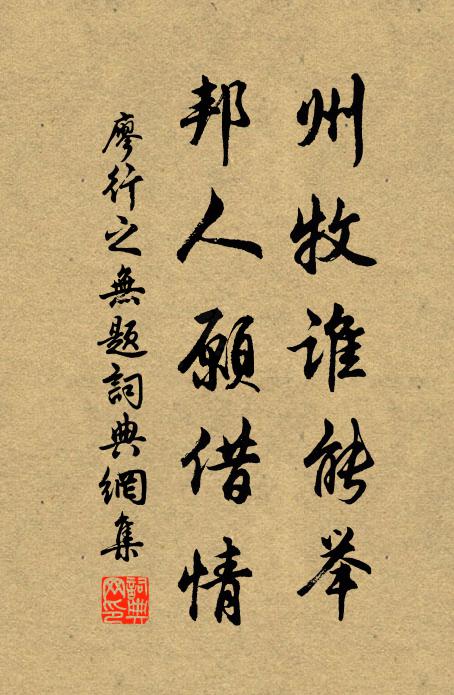 州牧谁能举
邦人願借情
廖行之無题詞典網集
詞典
网印